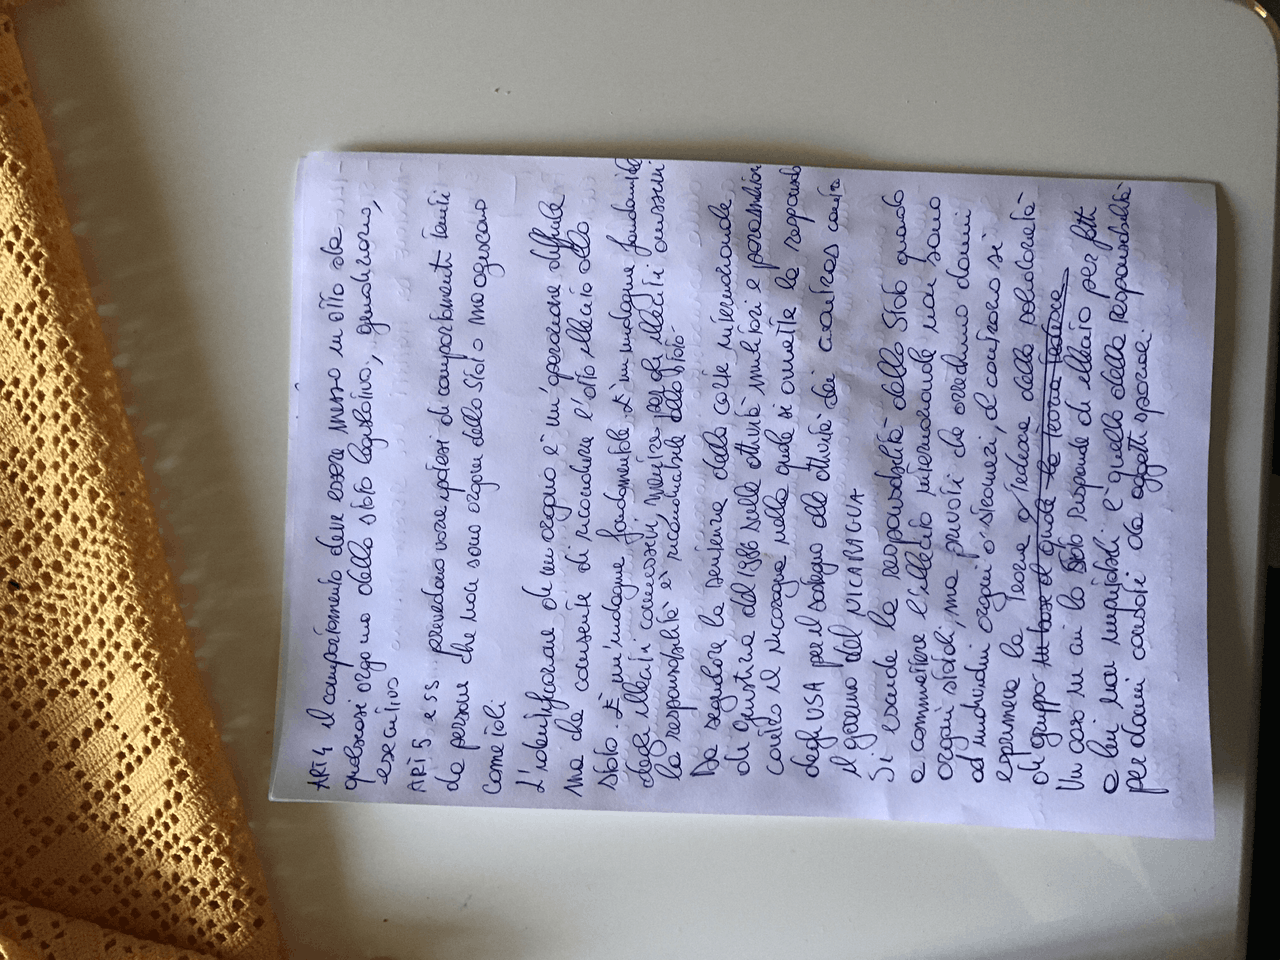 ART 4 il comportamento deve essere messo in atto da
qualsiasi orgo no dello stato legislativo, giudiziario,
esecutivo
ART 5 e ss prevedono varie ipotesi di comportamenti tenuti
da persone che non sono organi dello Stato ma agiscono
come tali
L'identificazione di un organo è un'operazione difficile
ma che consente di ricondurre l'atto illecito allo
Stato. È un'indagine fondamentale È un'indagine fondamentale
degli illeciti commissivi, mentre per gli illeciti omissivi
la responsabilità è riconducibile dello stato
Da segnalare la sentenza della corte internazionale
di giustizia del 1986 sulle attività militari e paramilitari
contro il Nicaragua nella quale si ammette la responsab
degli USA per il sostegno alle attività dei contras contro
il governo del NICARAGUA
Si esclude la responsabilità dello Stato quando
a commettere l'illecito internazionale non sono
organi statali, ma privati che arrechino danni
ad individui organi o stranieri, al contrario si
esprimeva la teoria tedesca della solidarietà
di gruppo in base al quale la teoria tedesca
Un caso in cui lo Stato risponde di illecito per fatti
a lui non imputabili è quello della responsabilità
per danni causati da oggetti spaziali.